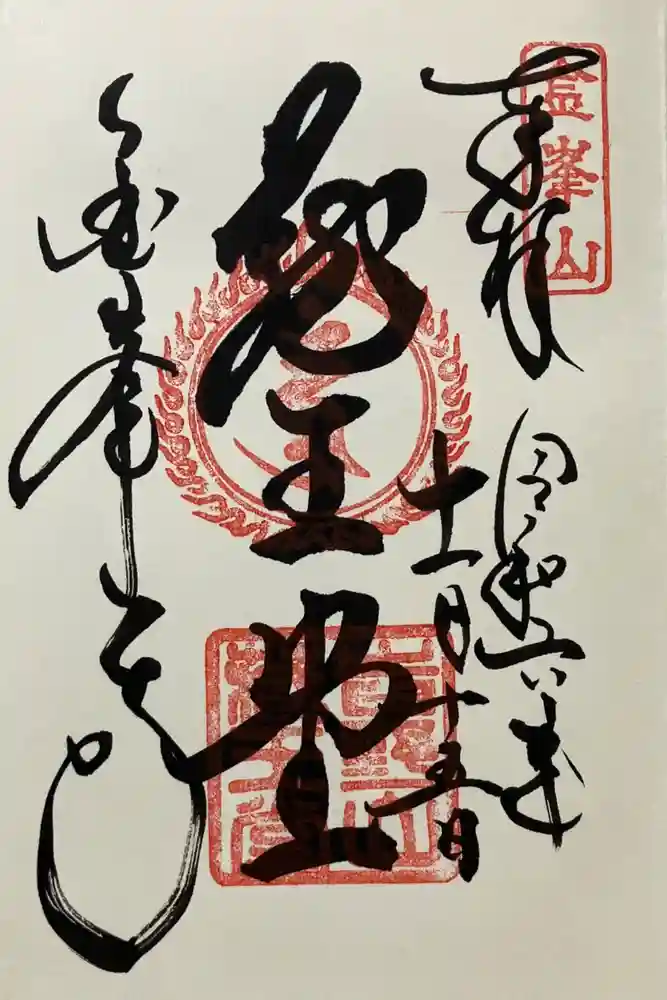 金峯山
奉拝
令和六年
十一月十五日
蔵王堂
金峯山寺